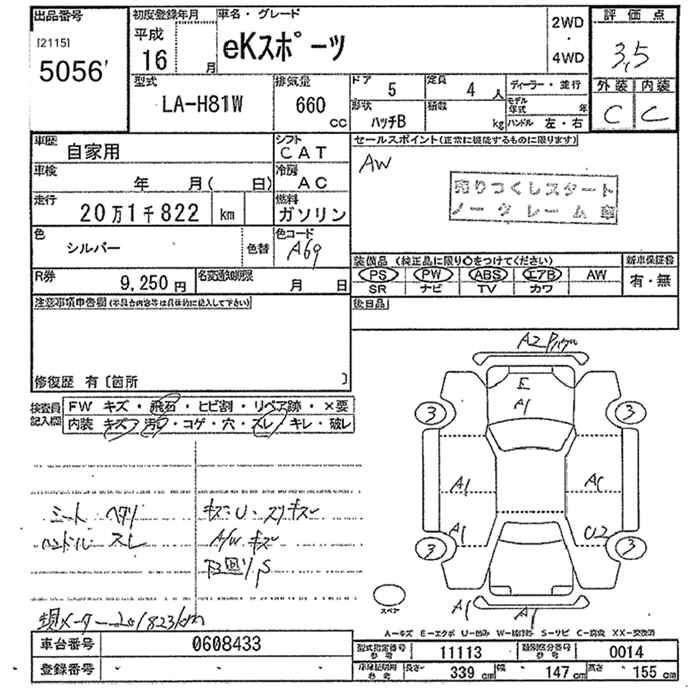 出品番号
[2115]
5056'
初度登録年月
平成
16 月
車名・グレード
eKスポーツ
2WD
・
4WD
評価点
3,5
外装 内装
C C
型式
LA-H81W
排気量
660 cc
ドア 5
定員 4 人
形状 ハッチB
積数 kg
ディーラー・並行
モデル年式 年
ハンドル 左・右
車歴
自家用
シフト
CAT
車検
年 月( 日)
冷房
AC
走行
20万1千822 km
燃料
ガソリン
色
シルバー
色替
色コード
A69
R券
9,250円
名変通知期限
月 日
セールスポイント(正常に機能するものに限ります)
AW
売りつくしスタート
ノークレーム車
装備品 (純正品に限り○をつけてください)
PS PW ABS エアB AW
SR ナビ TV カワ
新車保証書
有・無
後日品
注意事項申告欄(不具合内容等は具体的に記入して下さい)
修復歴 有〔箇所 〕
検査員記入欄
FW キズ・飛石・ヒビ割・リペア跡・×要
内装 キズ・汚レ・コゲ・穴・スレ・キレ・破レ
シート ヘタリ
ハンドル スレ
キズ・U・スリキズ
A/W キズ
下回り S
現メーター 201823km
A2
E
A1
3
3
A1
A1
U2
3
3
A1
A1
スペア
A-キズ E-エクボ U-凹み W-補修跡 S-サビ C-腐食 XX-交換済
車台番号
0608433
登録番号
型式指定番号
参考
11113
類別区分番号
参考
0014
長さ 339 cm
幅 147 cm
高さ 155 cm